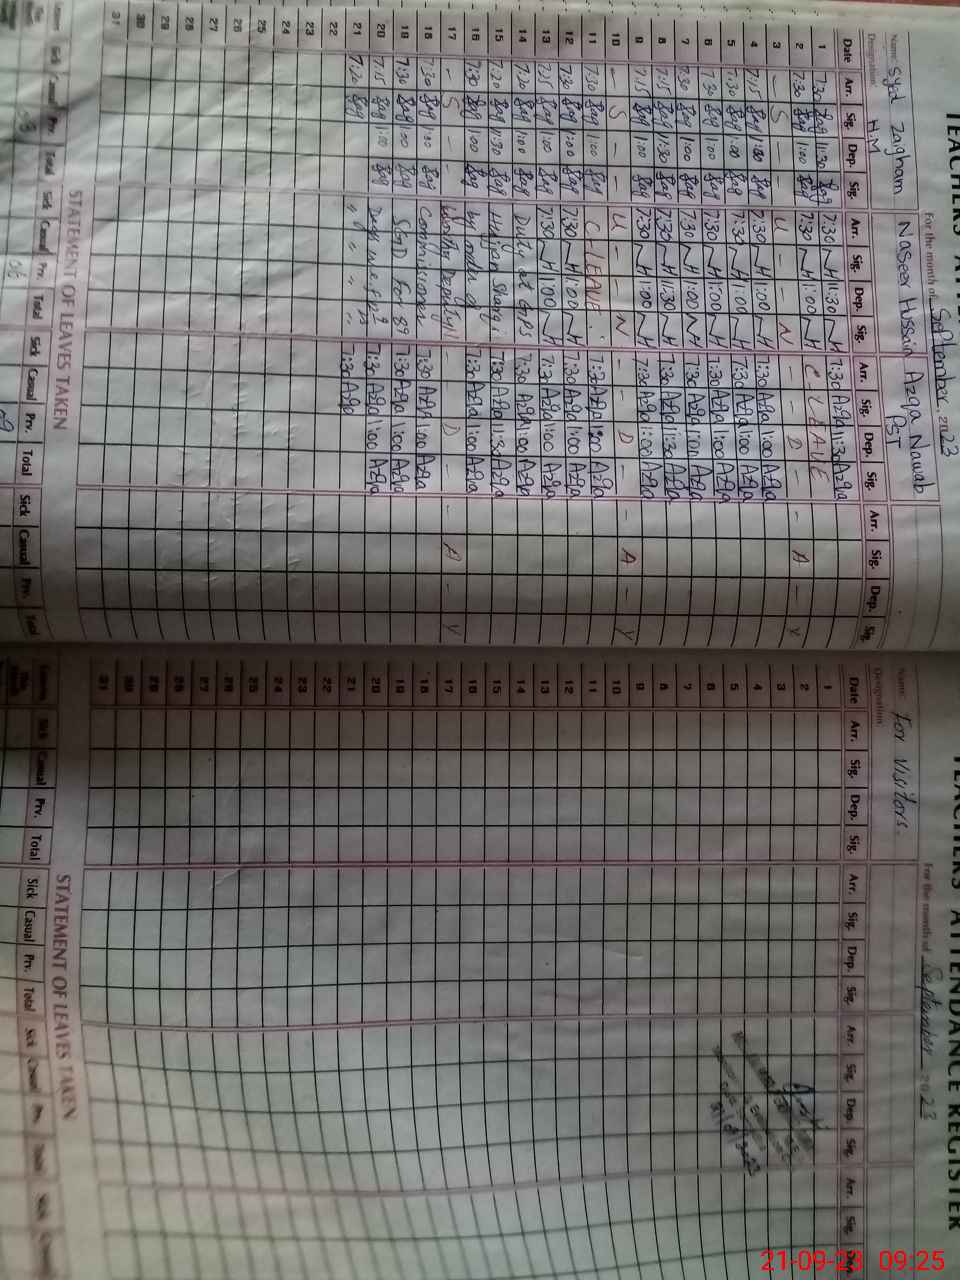 TEACHERS ATTENDANCE REGISTER
For the month of September 2023
Name: Syed Zaigham
Naseer Hussain
Azqa Nawab
Designation: H.M
PST
Date Arr. Sig. Dep. Sig. Arr. Sig. Dep. Sig. Arr. Sig. Dep. Sig. Arr. Sig. Dep. Sig.
1 7:30 11:30 7:30 11:30 7:30 Azqa 11:30 Azqa
2 7:30 1:00 7:30 1:00 C-LEAVE
3 - S - - U - - N - - D - - A - Y
4 7:15 1:00 7:30 1:00 7:30 Azqa 1:00 Azqa
5 7:30 1:00 7:30 1:00 7:30 Azqa 1:00 Azqa
6 7:30 1:00 7:30 1:00 7:30 Azqa 1:00 Azqa
7 7:30 1:00 7:30 1:00 7:30 Azqa 1:00 Azqa
8 7:15 11:30 7:30 11:30 7:30 Azqa 11:30 Azqa
9 7:15 1:00 7:30 1:00 7:30 Azqa 1:00 Azqa
10 - S - - U - - N - - D - - A - Y
11 7:30 1:00 C-LEAVE. 7:30 Azqa 1:00 Azqa
12 7:30 1:00 7:30 1:00 7:30 Azqa 1:00 Azqa
13 7:15 1:00 7:30 1:00 7:30 Azqa 1:00 Azqa
14 7:20 1:00 Duty at GPS 7:30 Azqa 1:00 Azqa
15 7:20 11:30 Sharqi 7:30 Azqa 11:30 Azqa
16 7:30 1:00 by order of 7:30 Azqa 1:00 Azqa
17 - S - - Worthy Deputy - D - - A - Y
18 7:30 1:00 Commissioner 7:30 Azqa 1:00 Azqa
19 7:30 1:00 SGD For 7:30 Azqa 1:00 Azqa
20 7:15 1:00 7:30 Azqa 1:00 Azqa
21 7:20 " " " " 7:30 Azqa
22
23
24
25
26
27
28
29
30
31
STATEMENT OF LEAVES TAKEN
Sick Casual Prv. Total Sick Casual Prv. Total Sick Casual Prv. Total Sick Casual Prv. Total
TEACHERS ATTENDANCE REGISTER
For the month of September 2023
Name: For Visitors.
Designation:
Date Arr. Sig. Dep. Sig. Arr. Sig. Dep. Sig. Arr. Sig. Dep. Sig. Arr. Sig. Dep.
1
2
3
4
5
6
7
8
9
10
11
12
13
14
15
16
17
18
19
20
21
22
23
24
25
26
27
28
29
30
31
STATEMENT OF LEAVES TAKEN
Sick Casual Prv. Total Sick Casual Prv. Total Sick Casual Prv. Total Sick Casual
21-09-23 09:25